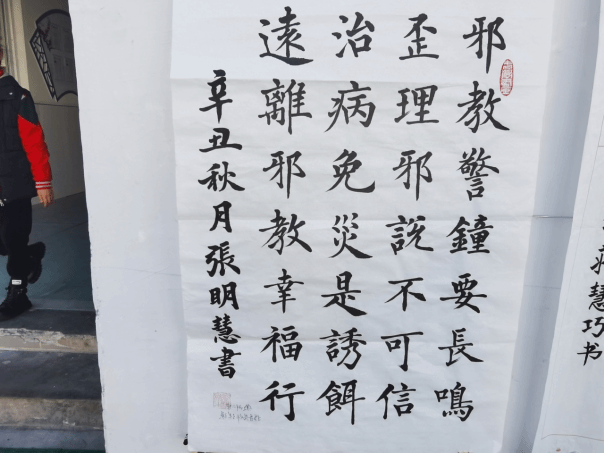 邪教警鐘要長鳴
歪理邪説不可信
治病免災是誘餌
遠離邪教幸福行
辛丑秋月張明慧書
慧巧书